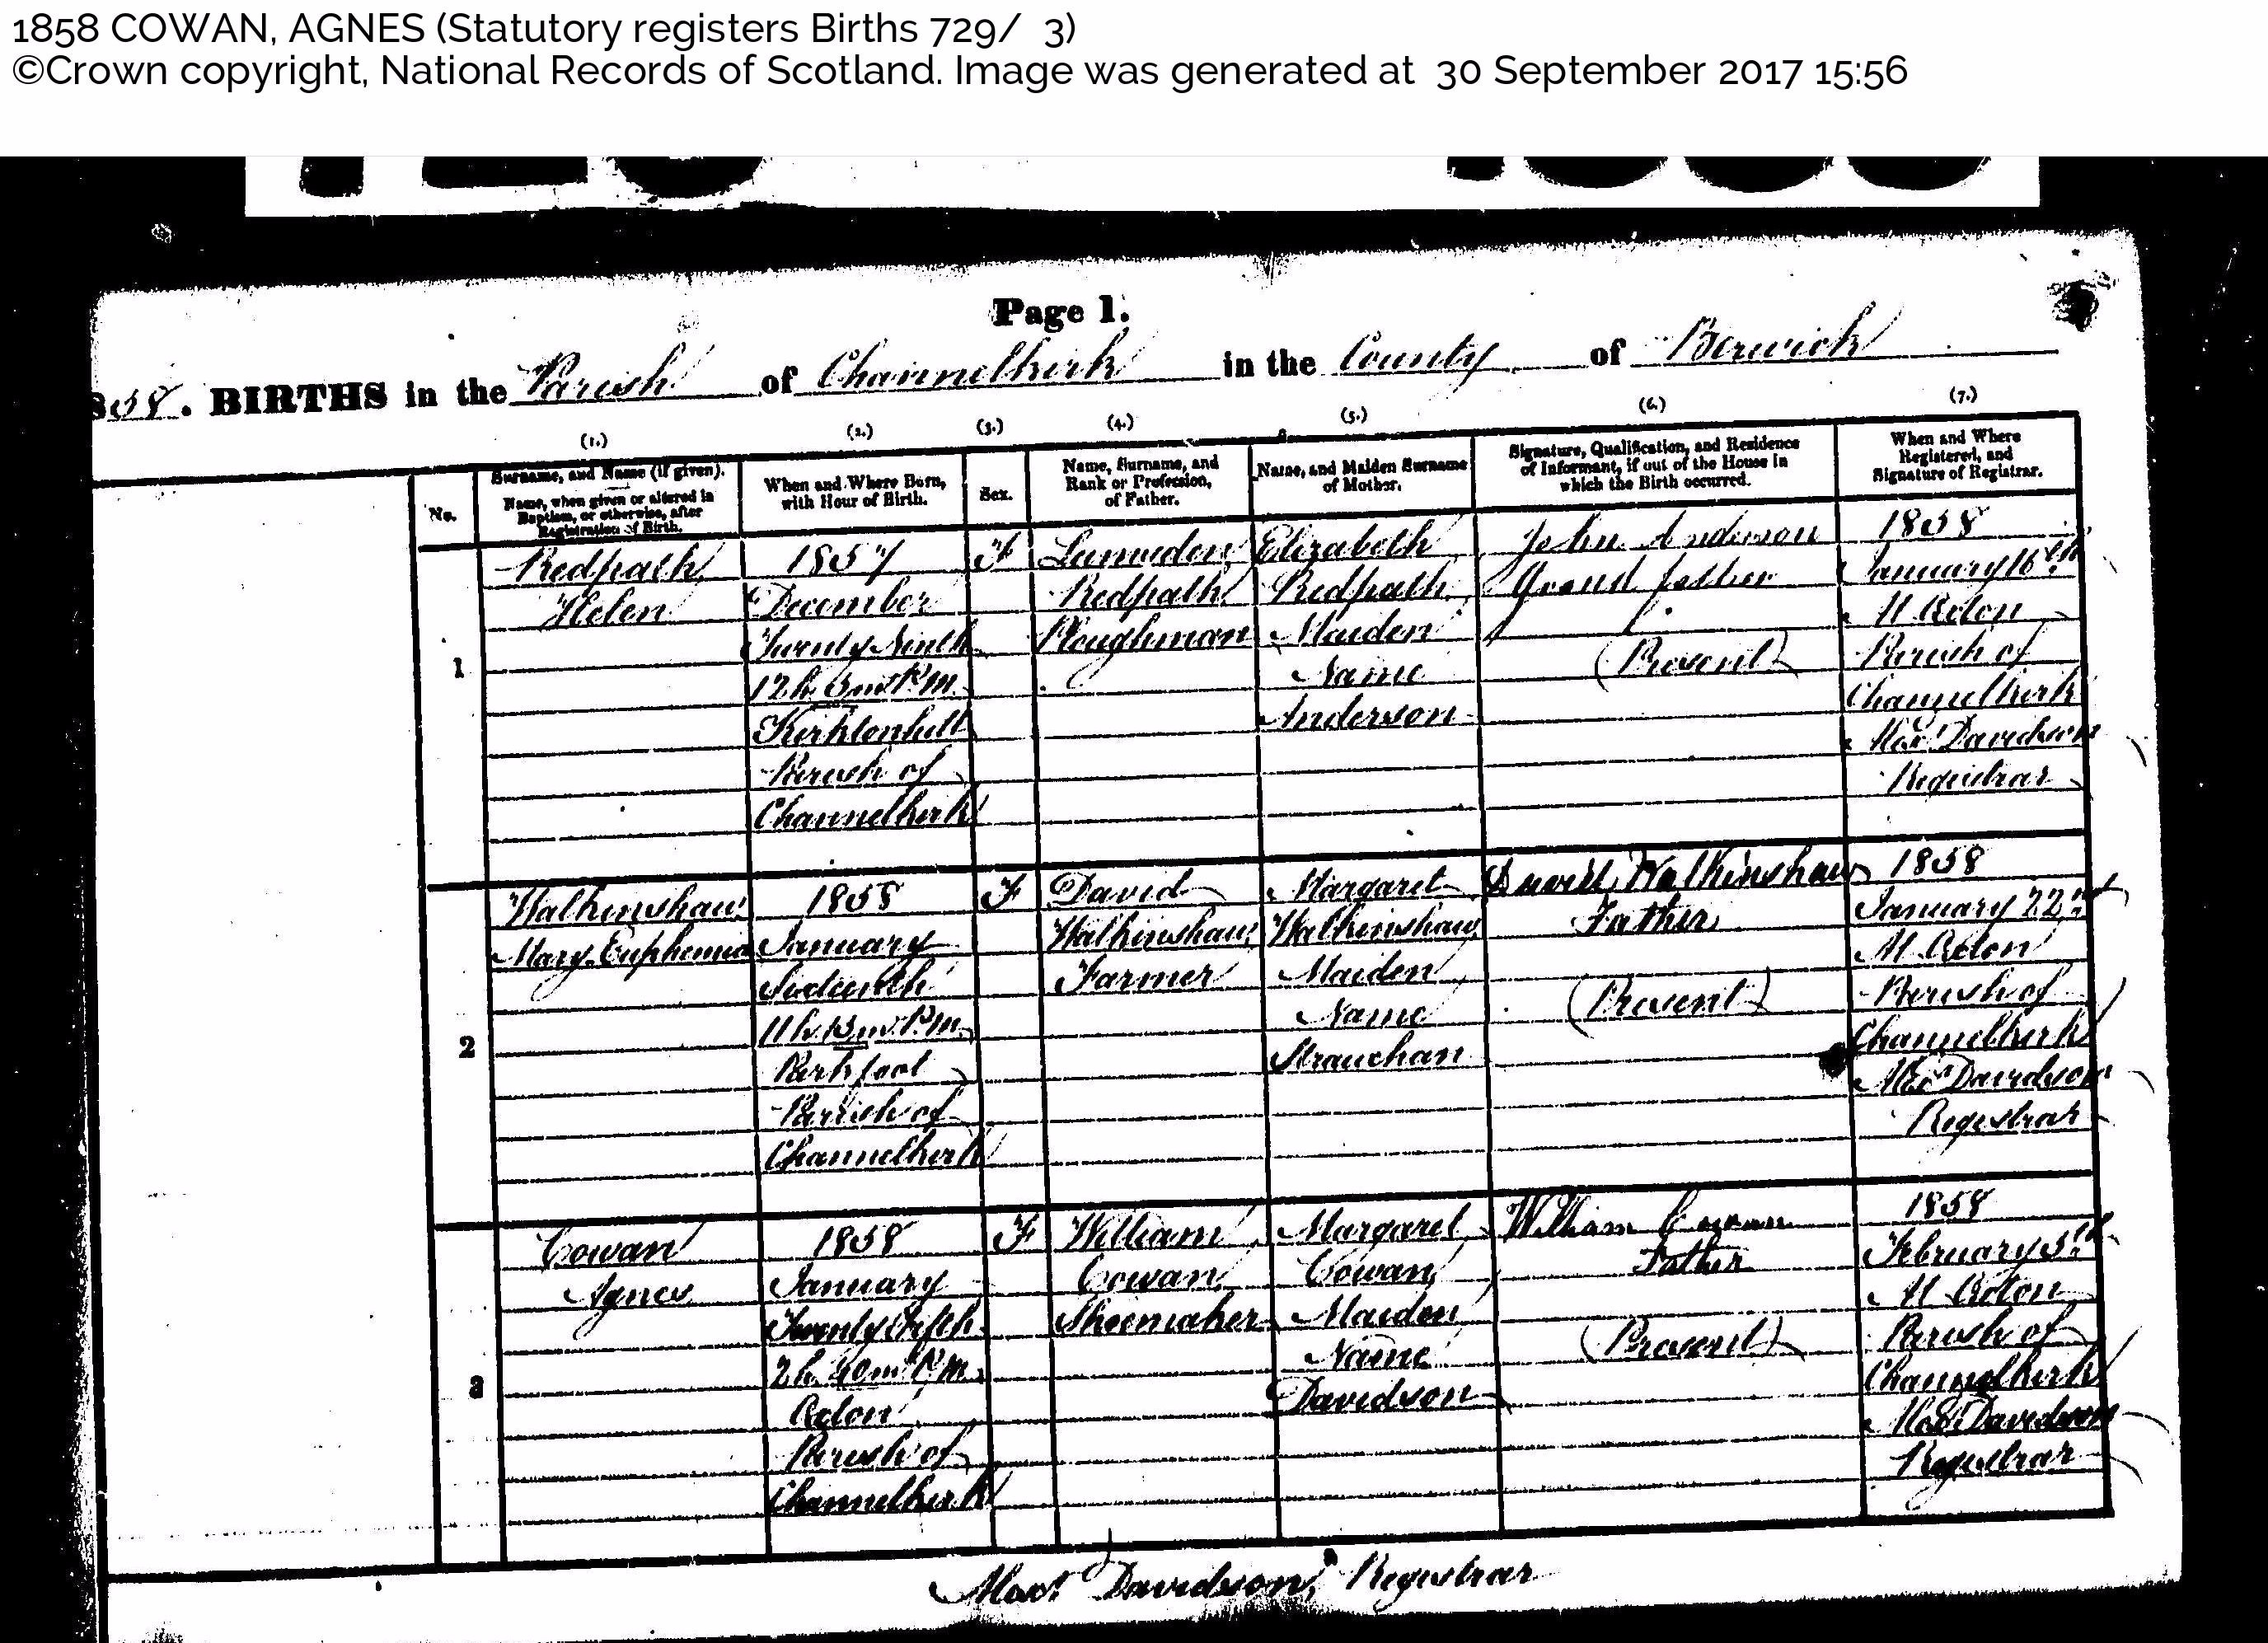 1858 COWAN, AGNES (Statutory registers Births 729/ 3)
©Crown copyright, National Records of Scotland. Image was generated at 30 September 2017 15:56
Page 1.
858. BIRTHS in the Parish of Channelkirk in the County of Berwick
(1.) (2.) (3.) (4.) (5.) (6.) (7.)
No.
Surname, and Name (if given).
Name, when given or altered in
Baptism, or otherwise, after
Registration of Birth.
When and Where Born,
with Hour of Birth.
Sex.
Name, Surname, and
Rank or Profession,
of Father.
Name, and Maiden Surname
of Mother.
Signature, Qualification, and Residence
of Informant, if out of the House in
which the Birth occurred.
When and Where
Registered, and
Signature of Registrar.
1
Redpath
Helen
1857
December
Twenty Ninth
12h. m. P.M.
Kirktonhill
Parish of
Channelkirk
F
Lumsden
Redpath
Ploughman
Elizabeth
Redpath
Maiden
Name
Anderson
John Anderson
Grand father
(Present)
1858
January 16th
At Oxton
Parish of
Channelkirk
Alexr Davidson
Registrar
2
Walkinshaw
Mary Euphemia
1858
January
Sixteenth
11h. m. P.M.
Kirkfoot
Parish of
Channelkirk
F
David
Walkinshaw
Farmer
Margaret
Walkinshaw
Maiden
Name
Strauchan
David Walkinshaw
Father
(Present)
1858
January 22nd
At Oxton
Parish of
Channelkirk
Alexr Davidson
Registrar
3
Cowan
Agnes
1858
January
Twenty Fifth
2h. 40m. P.M.
Oxton
Parish of
Channelkirk
F
William
Cowan
Shoemaker
Margaret
Cowan
Maiden
Name
Davidson
William Cowan
Father
(Present)
1858
February 5th
At Oxton
Parish of
Channelkirk
Alexr Davidson
Registrar
Alexr Davidson, Registrar